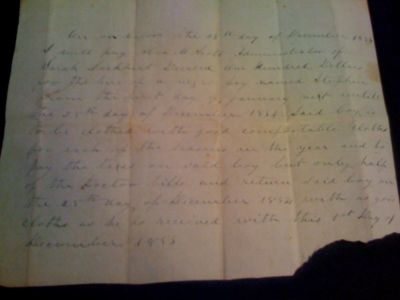 On or before the 25th day of December 1884
I will pay M Scott Administrator of
Sarah Lockhart Deceased One Hundred Dollars
for the hire of a negro boy named Stephen
from the first day of January next untill
the 25th day of December 1884 Said boy is
to be clothed with good comfortable clothes
for each of the seasons in the year and to
pay the taxes on said boy but only half
of the Doctor bills and return said boy on
the 25th day of December 1884 with as good
cloths as he is received with this 1st day of
December 1853